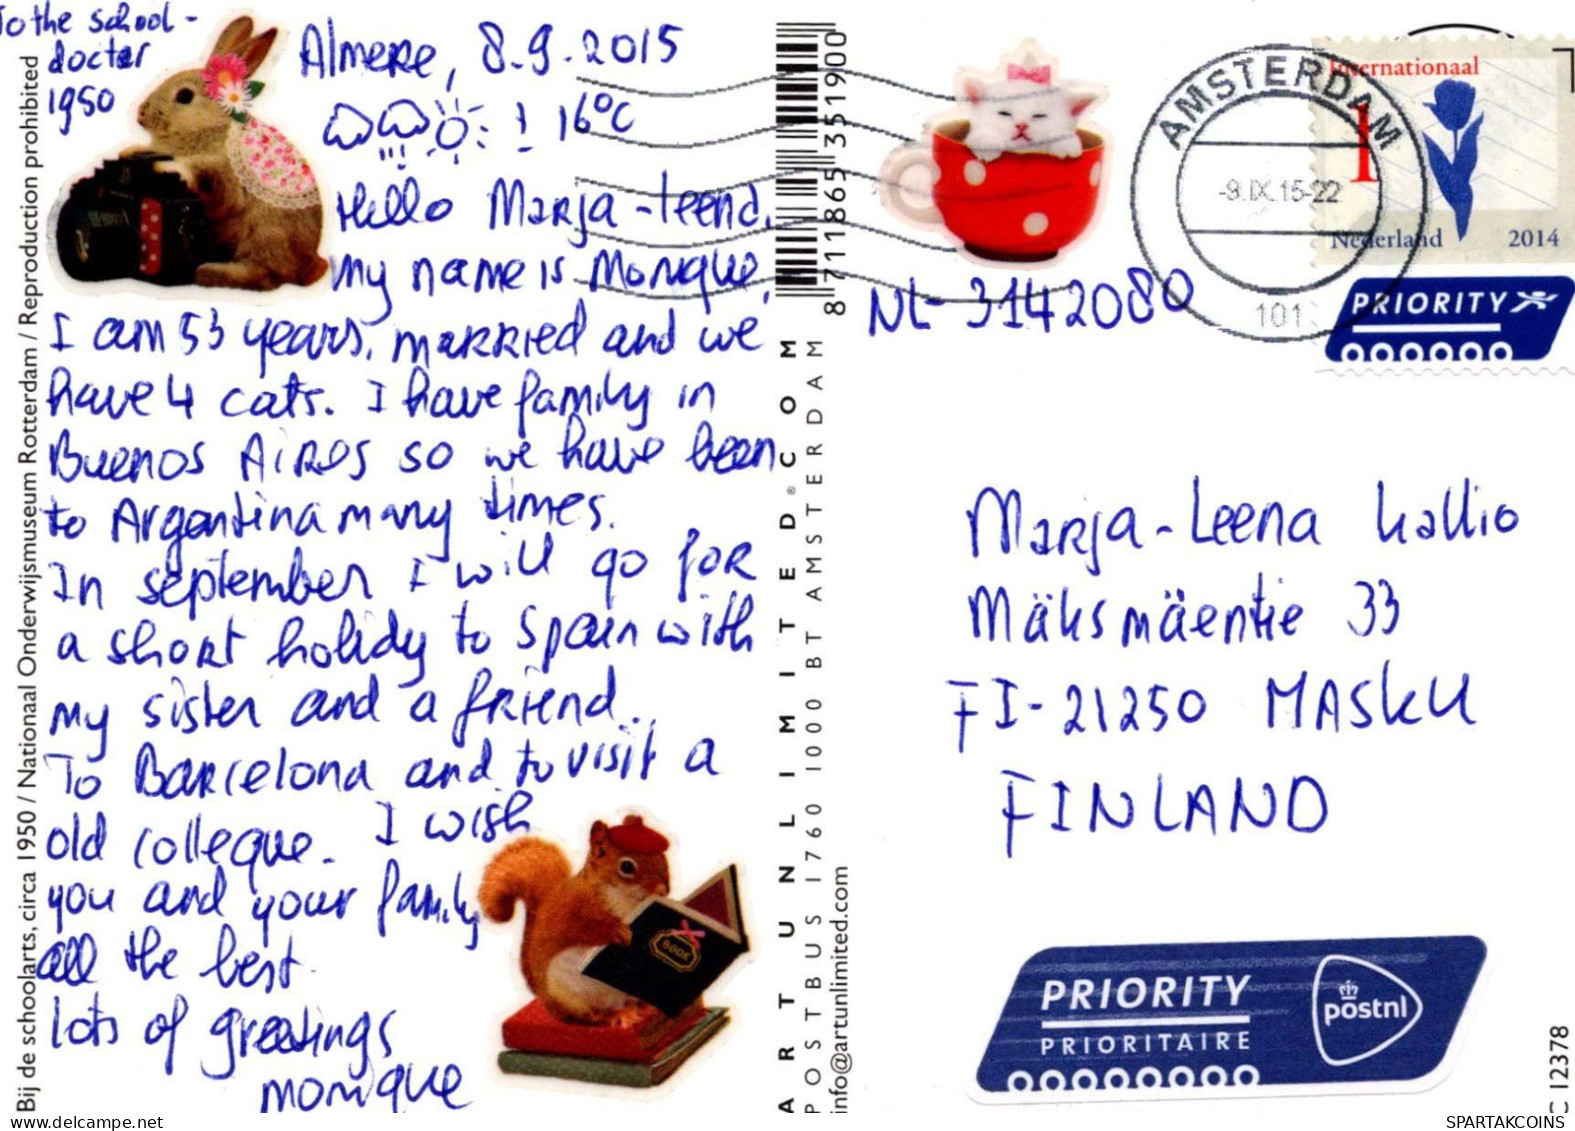 To the school-
doctor
1950
Almere, 8.9.2015
! 16°C
Hello Marja-Leena,
my name is Monique,
I am 53 years, married and we
have 4 cats. I have family in
Buenos Aires so we have been
to Argentina many times.
In september I will go for
a short holidy to Spain with
my sister and a friend.
To Barcelona and to visit a
old colleque. I wish
you and your family
all the best.
lots of greetings
monique
Bij de schoolarts, circa 1950 / Nationaal Onderwijsmuseum Rotterdam / Reproduction prohibited
BOOK
ARTUNLIMITED®COM
POSTBUS 1760 1000 BT AMSTERDAM
info@artunlimited.com
8 711865 351900
NL-3142080
AMSTERDAM
-9.IX.15-22
101
Internationaal
1
Nederland 2014
PRIORITY
Marja-Leena Kallio
Mäksmäentie 33
FI-21250 MASKU
FINLAND
PRIORITY
PRIORITAIRE
postnl
C 12378
www.delcampe.net
SPARTAKCOINS